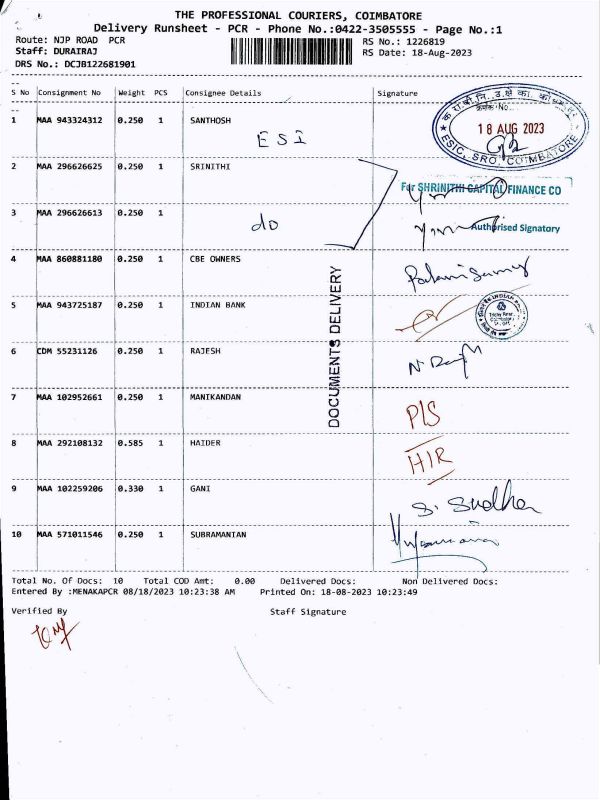 THE PROFESSIONAL COURIERS, COIMBATORE
Delivery Runsheet - PCR - Phone No.:0422-3505555 - Page No.:1
Route: NJP ROAD PCR
RS No.: 1226819
Staff: DURAIRAJ
RS Date: 18-Aug-2023
DRS No.: DCJB122681901
S No Consignment No Weight PCS Consignee Details Signature
1 MAA 943324312 0.250 1 SANTHOSH
ESI
18 AUG 2023
ESIC, SRO, COIMBATORE
2 MAA 296626625 0.250 1 SRINITHI
For SHRINITHI CAPITAL FINANCE CO
3 MAA 296626613 0.250 1
do
Authorised Signatory
4 MAA 860881180 0.250 1 CBE OWNERS
5 MAA 943725187 0.250 1 INDIAN BANK
DOCUMENTS DELIVERY
6 CDM 55231126 0.250 1 RAJESH
7 MAA 102952661 0.250 1 MANIKANDAN
P/S
8 MAA 292108132 0.585 1 HAIDER
H/R
9 MAA 102259206 0.330 1 GANI
S. Sudha
10 MAA 571011546 0.250 1 SUBRAMANIAN
Total No. Of Docs: 10 Total COD Amt: 0.00 Delivered Docs: Non Delivered Docs:
Entered By :MENAKAPCR 08/18/2023 10:23:38 AM Printed On: 18-08-2023 10:23:49
Verified By Staff Signature